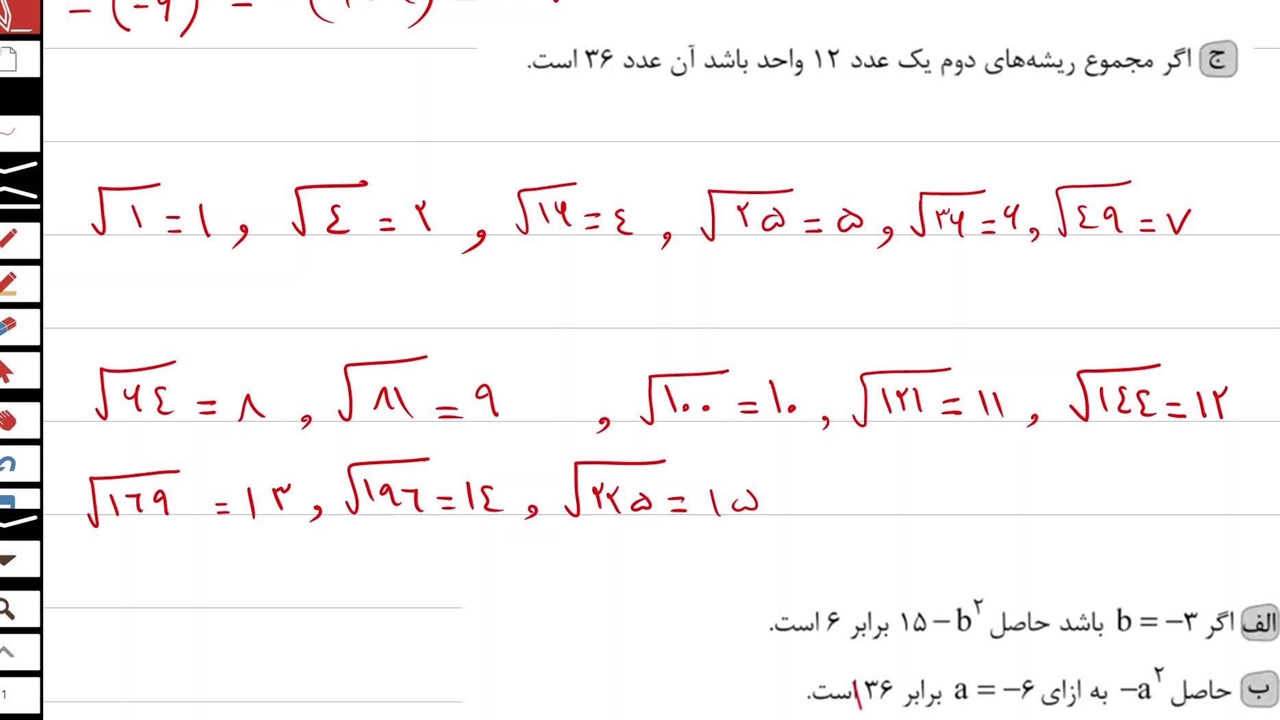 = (−۹) = −
ج اگر مجموع ریشه‌های دوم یک عدد ۱۲ واحد باشد آن عدد ۳۶ است.
√۱ = ۱ , √٤ = ۲ , √۱۶ = ٤ , √۲۵ = ۵ , √۳۶ = ۶ , √٤۹ = ۷
√۶٤ = ۸ , √۸۱ = ۹ , √۱۰۰ = ۱۰ , √۱۲۱ = ۱۱ , √۱٤٤ = ۱۲
√۱۶۹ = ۱۳ , √۱۹۶ = ۱٤ , √۲۲۵ = ۱۵
الف اگر b = −۳ باشد حاصل ۱۵ − b² برابر ۶ است.
ب حاصل −a² به ازای a = −۶ برابر ۳۶ است.
1